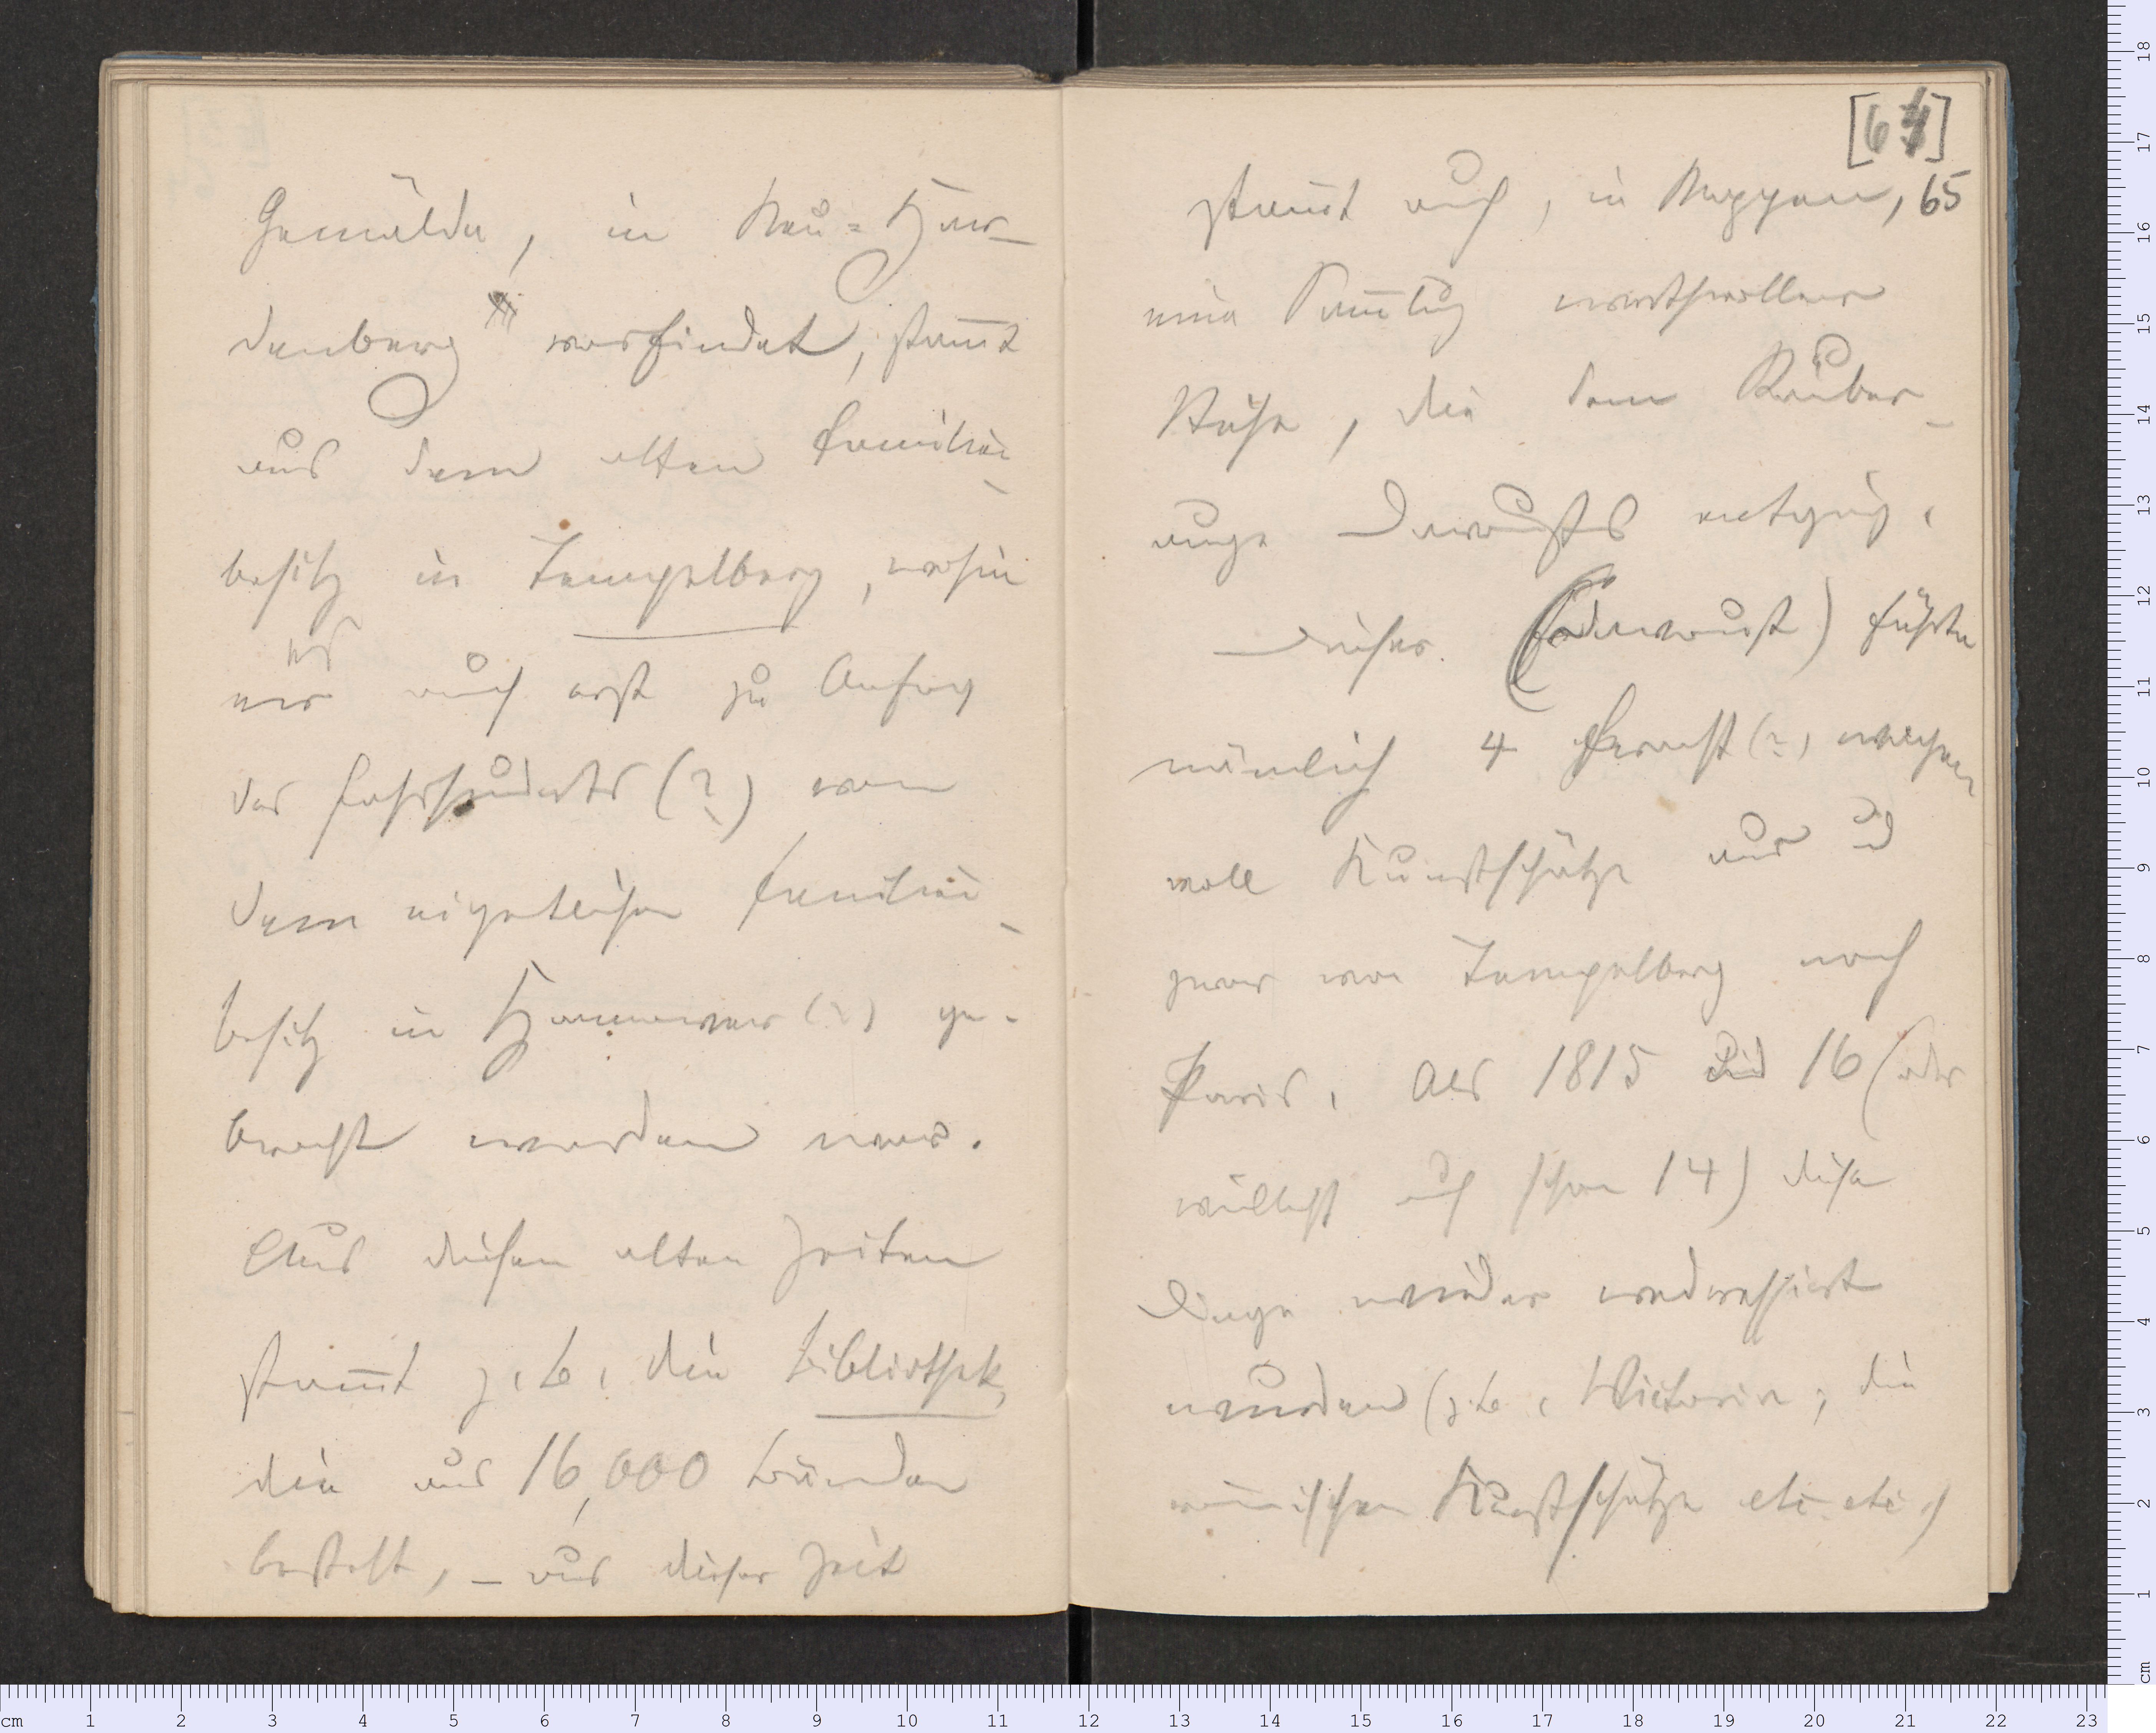 Gemälde, in Neu-Har-
denberg vorfindet, stam̄t
aus dem alten Familien-
besitz in Tempelberg, wohin
es
er auch erst zu Anfang
des Jahrhunderts (?) von
dem eigentlichen Familien-
besitz in Hannover (?) ge-
bracht worden war.
Aus diesen alten Zeiten
stam̄t z. B. die Bibliothek,
die aus 16,000 Bänden
besteht, – aus dieser Zeit
[64]
stam̄t auch, in Mappen, 65
eine Sam̄lung werthvoller
Stiche, die dem Räuber-
auge Denon's entging.
Dieser (Denon) führte
nämlich 4 Fracht(?) wagen
voll Kunstschätze aus und
zwar von Tempelberg nach
Paris. Als 1815 und 16 (oder
vielleicht auch schon 14) diese
Dinge wieder redressirt
wurden (z. B. Victoria, die
römischen Kunstschätze etc etc)